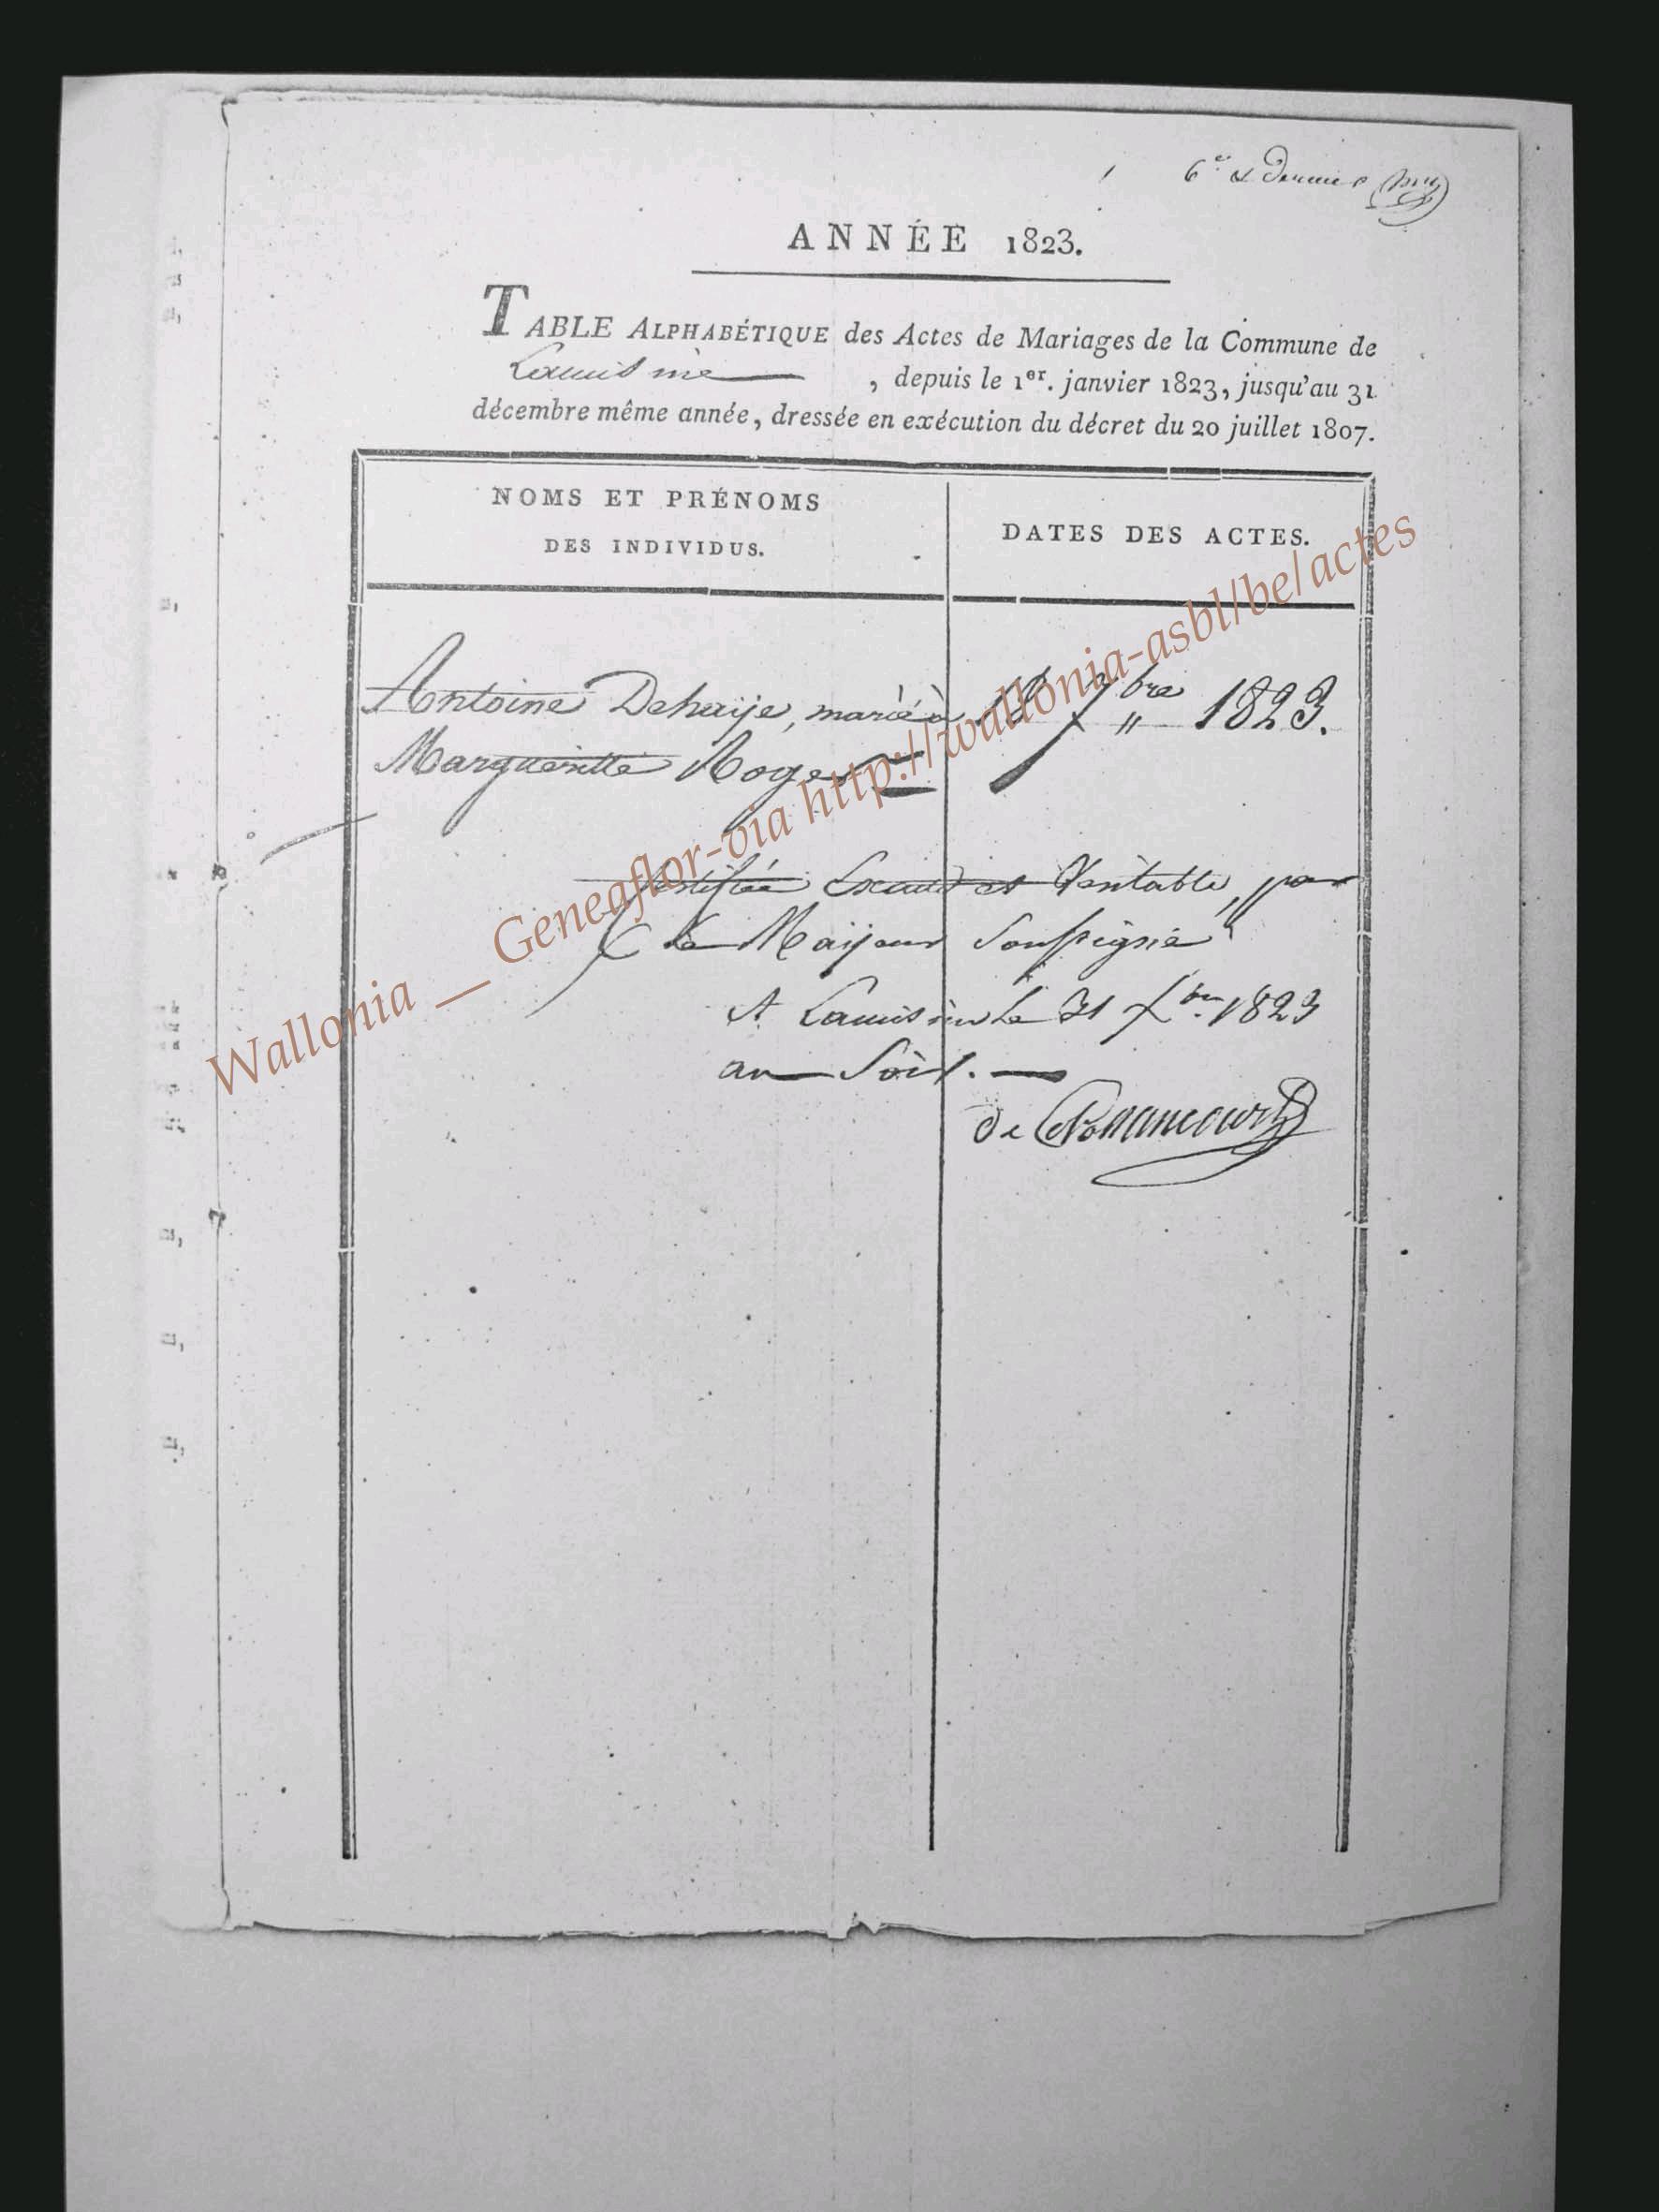 6e & Dernier
ANNÉE 1823.
TABLE ALPHABÉTIQUE des Actes de Mariages de la Commune de
Lacuisine, depuis le 1er. janvier 1823, jusqu'au 31
décembre même année, dressée en exécution du décret du 20 juillet 1807.
NOMS ET PRÉNOMS
DES INDIVIDUS.
DATES DES ACTES.
Antoine Dehaije, marié à
7bre " 1823.
Margueritte Roger
Certifiée Exacte et Véritable, par
le Maijeur Soussigné
A Lacuisine le 31 Xbre 1823
au Soir.
de
Wallonia __ Geneaflor-via http://wallonia-asbl/be/actes